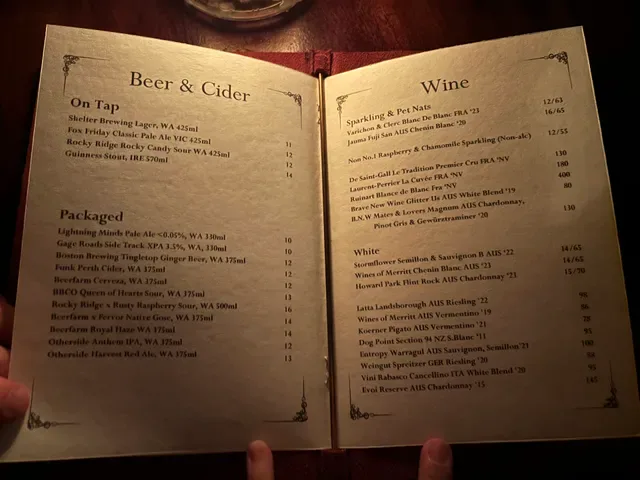 Beer & Cider
On Tap
Shelter Brewing Lager, WA 425ml 11
Fox Friday Classic Pale Ale VIC 425ml 12
Rocky Ridge Rocky Candy Sour WA 425ml 12
Guinness Stout, IRE 570ml 14
Packaged
Lightning Minds Pale Ale <0.05%, WA 330ml 10
Gage Roads Side Track XPA 3.5%, WA, 330ml 10
Boston Brewing Tingletop Ginger Beer, WA 375ml 12
Funk Perth Cider, WA 375ml 12
Beerfarm Cerveza, WA 375ml 12
BBCO Queen of Hearts Sour, WA 375ml 13
Rocky Ridge x Rusty Raspberry Sour, WA 500ml 16
Beerfarm x Fervor Native Gose, WA 375ml 14
Beerfarm Royal Haze WA 375ml 14
Otherside Anthem IPA, WA 375ml 12
Otherside Harvest Red Ale, WA 375ml 13
Wine
Sparkling & Pet Nats
Varichon & Clerc Blanc De Blanc FRA '23 12/63
Jauma Fuji San AUS Chenin Blanc '20 16/65
Non No.1 Raspberry & Chamomile Sparkling (Non-alc) 12/55
De Saint-Gall Le Tradition Premier Cru FRA 'NV 130
Laurent-Perrier La Cuvée FRA 'NV 180
Ruinart Blance de Blanc Fra 'NV 400
Brave New Wine Glitter Us AUS White Blend '19 80
B.N.W Mates & Lovers Magnum AUS Chardonnay,
Pinot Gris & Gewürztraminer '20 130
White
Stormflower Semillon & Sauvignon B AUS '22 14/65
Wines of Merritt Chenin Blanc AUS '21 14/65
Howard Park Flint Rock AUS Chardonnay '21 15/70
Latta Landsborough AUS Riesling '22 96
Wines of Merritt AUS Vermentino '19 86
Koerner Pigato AUS Vermentino '21 78
Dog Point Section 94 NZ S.Blanc '11 95
Entropy Warragul AUS Sauvignon, Semillon'21 100
Weingut Spreitzer GER Riesling '20
Vini Rabasco Cancellino ITA White Blend '20 95
Evoi Reserve AUS Chardonnay '15 145